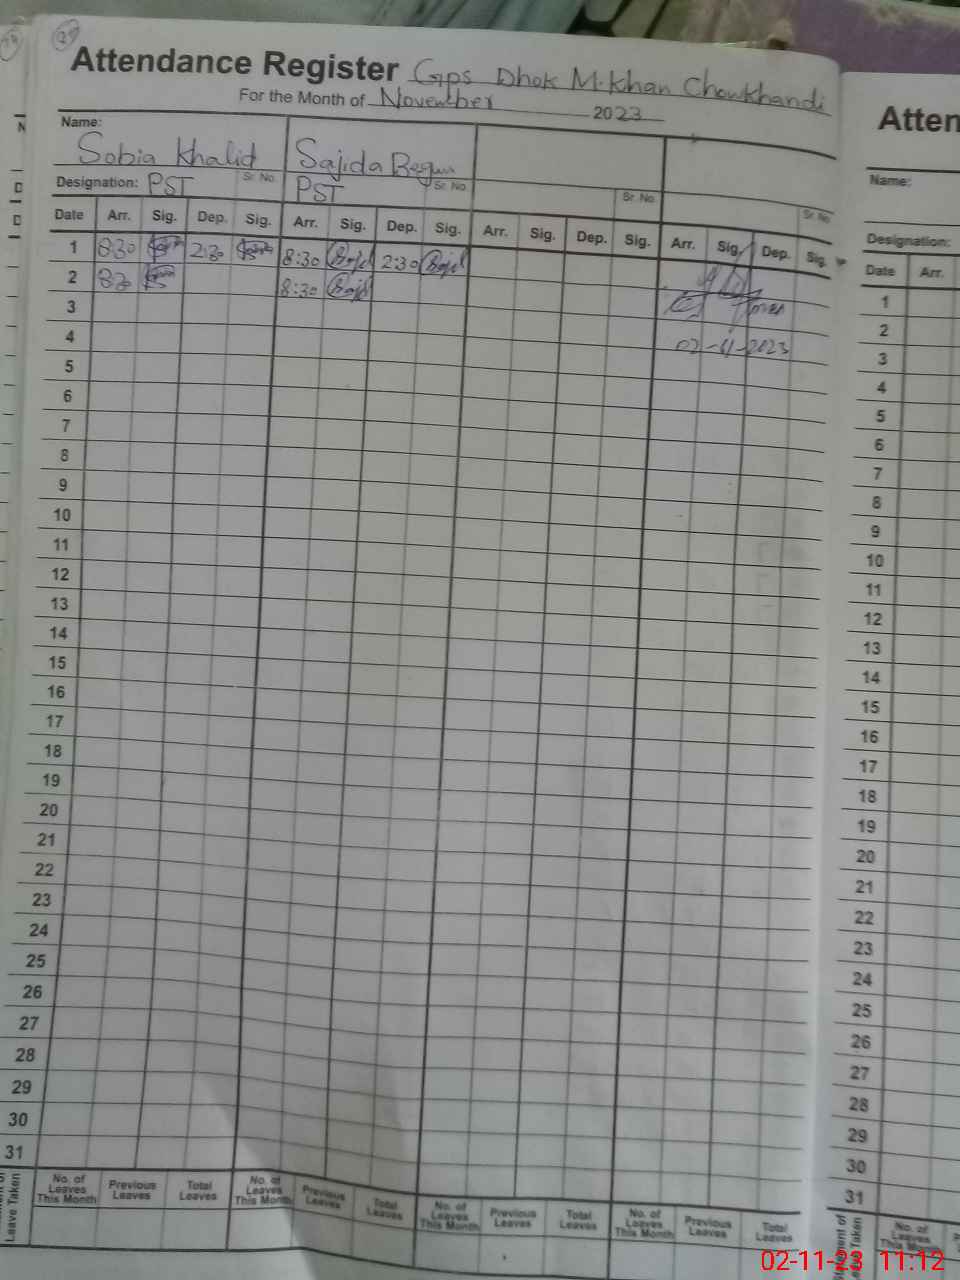 39
Attendance Register Gps Dhok M.Khan Chowkhandi
For the Month of November 2023
Name:
Sobia Khalid Sajida Begum
Designation: PST Sr. No. PST Sr. No. Sr. No. Sr. No.
Date Arr. Sig. Dep. Sig. Arr. Sig. Dep. Sig. Arr. Sig. Dep. Sig. Arr. Sig. Dep. Sig.
1 8:30 2:30 8:30 2:30
2 8:30 8:30
3
4 02-11-2023
5
6
7
8
9
10
11
12
13
14
15
16
17
18
19
20
21
22
23
24
25
26
27
28
29
30
31
Leave Taken
No. of Leaves This Month Previous Leaves Total Leaves No. of Leaves This Month Previous Leaves Total Leaves No. of Leaves This Month Previous Leaves Total Leaves No. of Leaves This Month Previous Leaves Total Leaves
Atten
Name:
Designation:
Date Arr.
1
2
3
4
5
6
7
8
9
10
11
12
13
14
15
16
17
18
19
20
21
22
23
24
25
26
27
28
29
30
31
No. of Leaves This Month
02-11-23 11:12